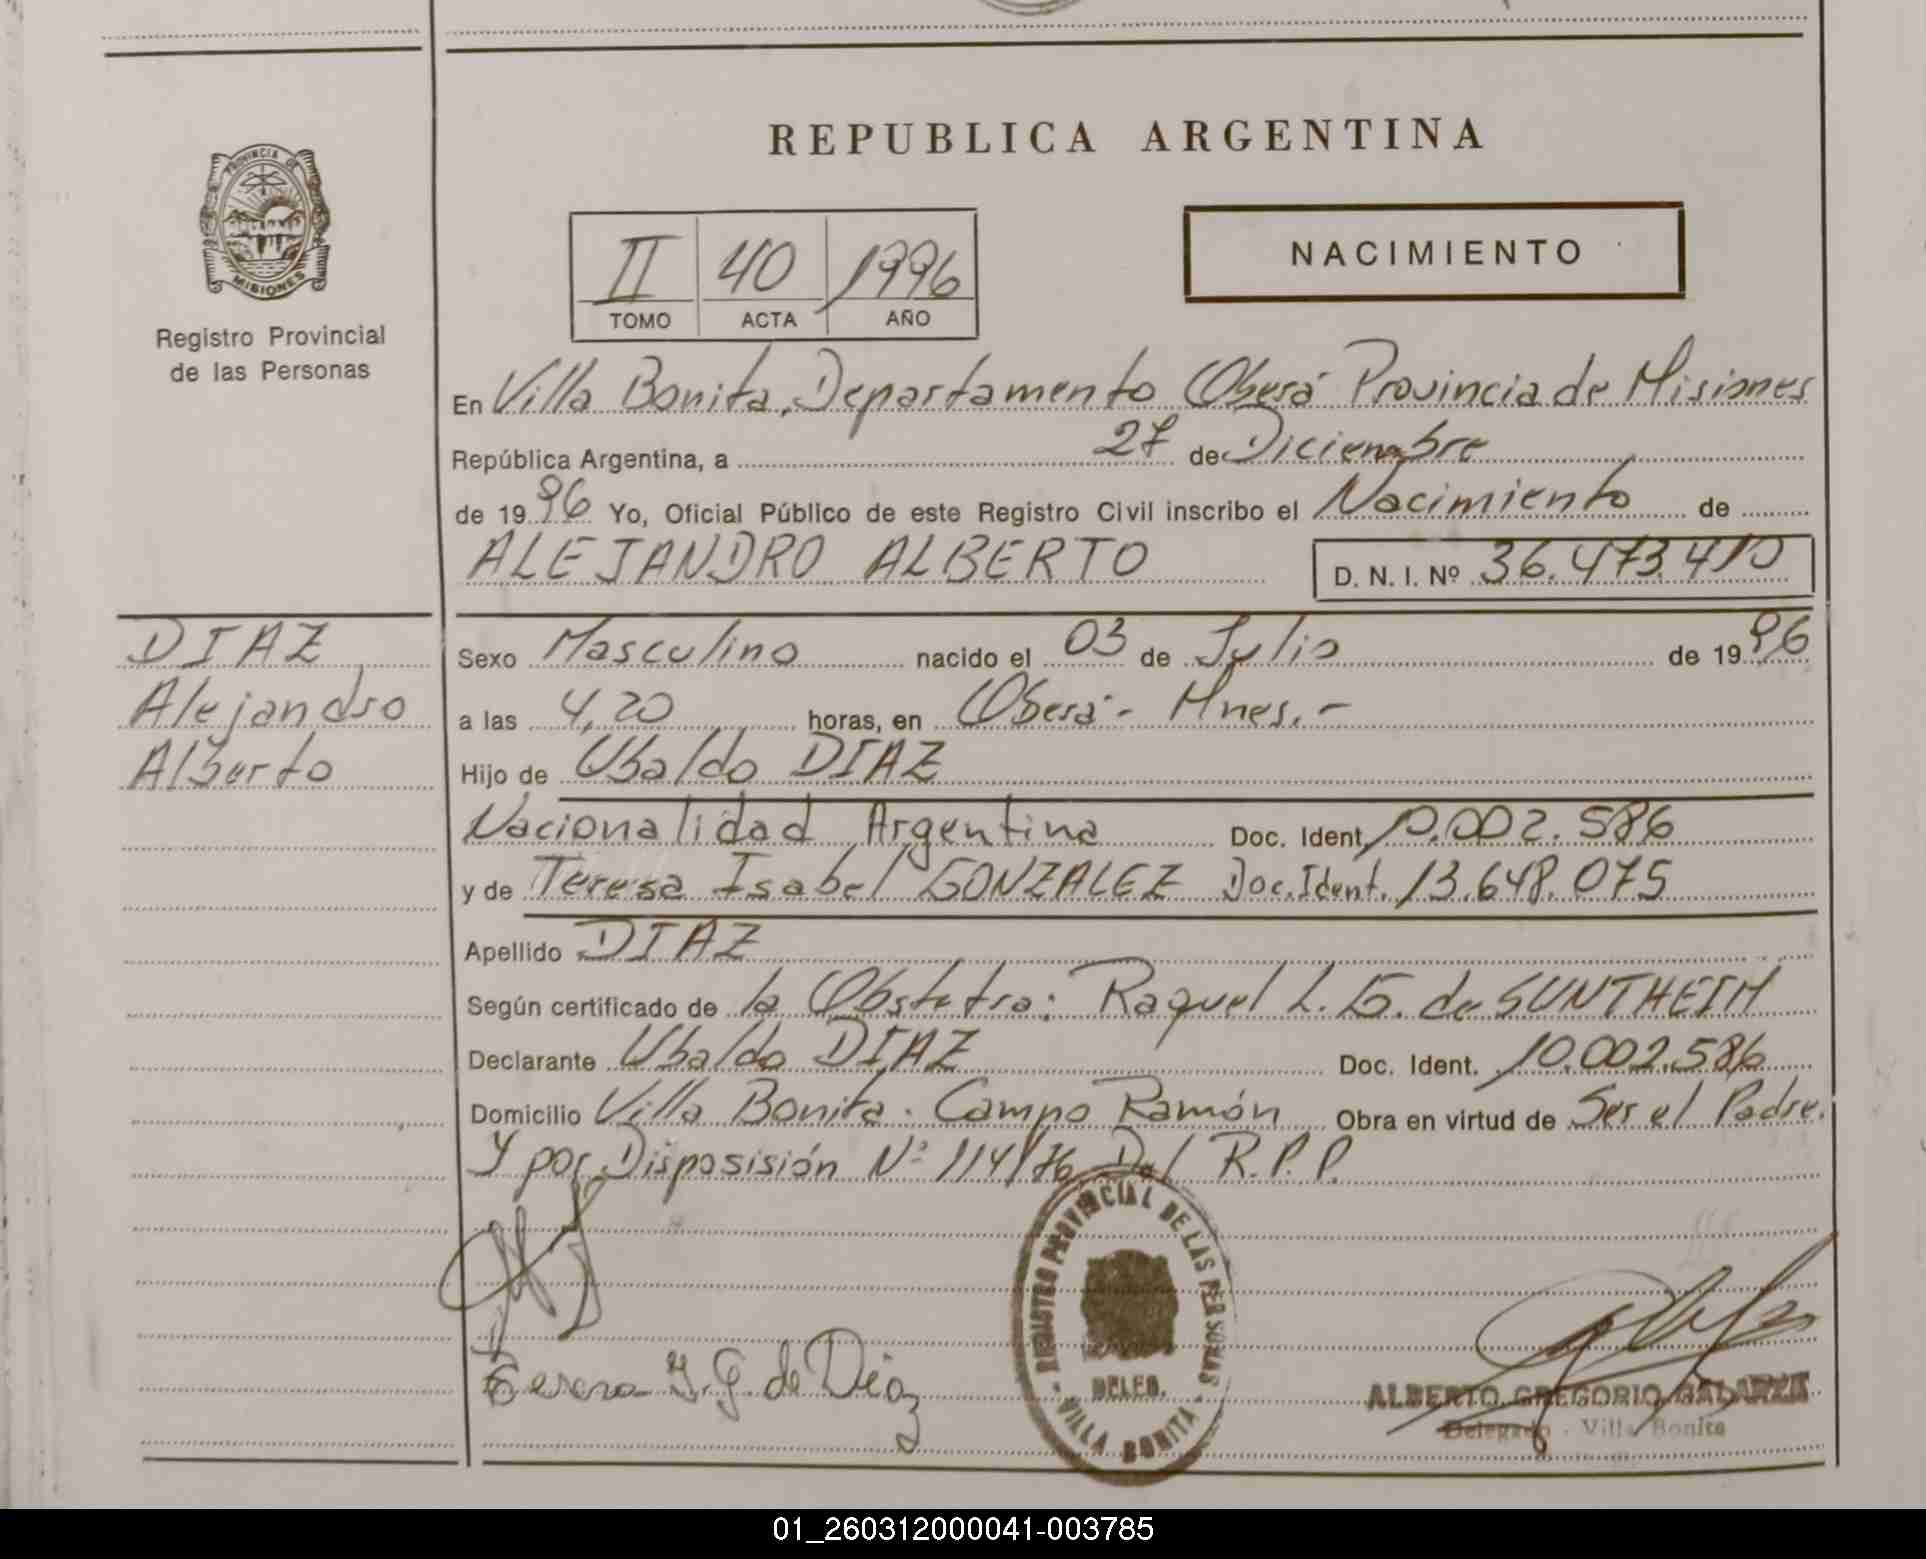 REPUBLICA ARGENTINA
PROVINCIA DE
MISIONES
Registro Provincial
de las Personas
II 40 1996
TOMO ACTA AÑO
NACIMIENTO
En Villa Bonita, Departamento Oberá Provincia de Misiones
República Argentina, a 27 de Diciembre
de 1996 Yo, Oficial Público de este Registro Civil inscribo el Nacimiento de
ALEJANDRO ALBERTO D. N. I. Nº 36.473.410
DIAZ
Alejandro
Alberto
Sexo Masculino nacido el 03 de Julio de 1996
a las 4,20 horas, en Oberá - Mnes. -
Hijo de Ubaldo DIAZ
Nacionalidad Argentina Doc. Ident. 10.002.586
y de Teresa Isabel GONZALEZ Doc. Ident. 13.648.075
Apellido DIAZ
Según certificado de la Obstetra: Raquel L. G. de SUNTHEIM
Declarante Ubaldo DIAZ Doc. Ident. 10.002.586
Domicilio Villa Bonita. Campo Ramón Obra en virtud de Ser el Padre.
Y por Disposisión Nº 114/76 Del R.P.P.
REGISTRO PROVINCIAL DE LAS PERSONAS
DELEG.
VILLA BONITA
Teresa I. G. de Díaz
ALBERTO GREGORIO GALARZA
Delegado - Villa Bonita
01_260312000041-003785